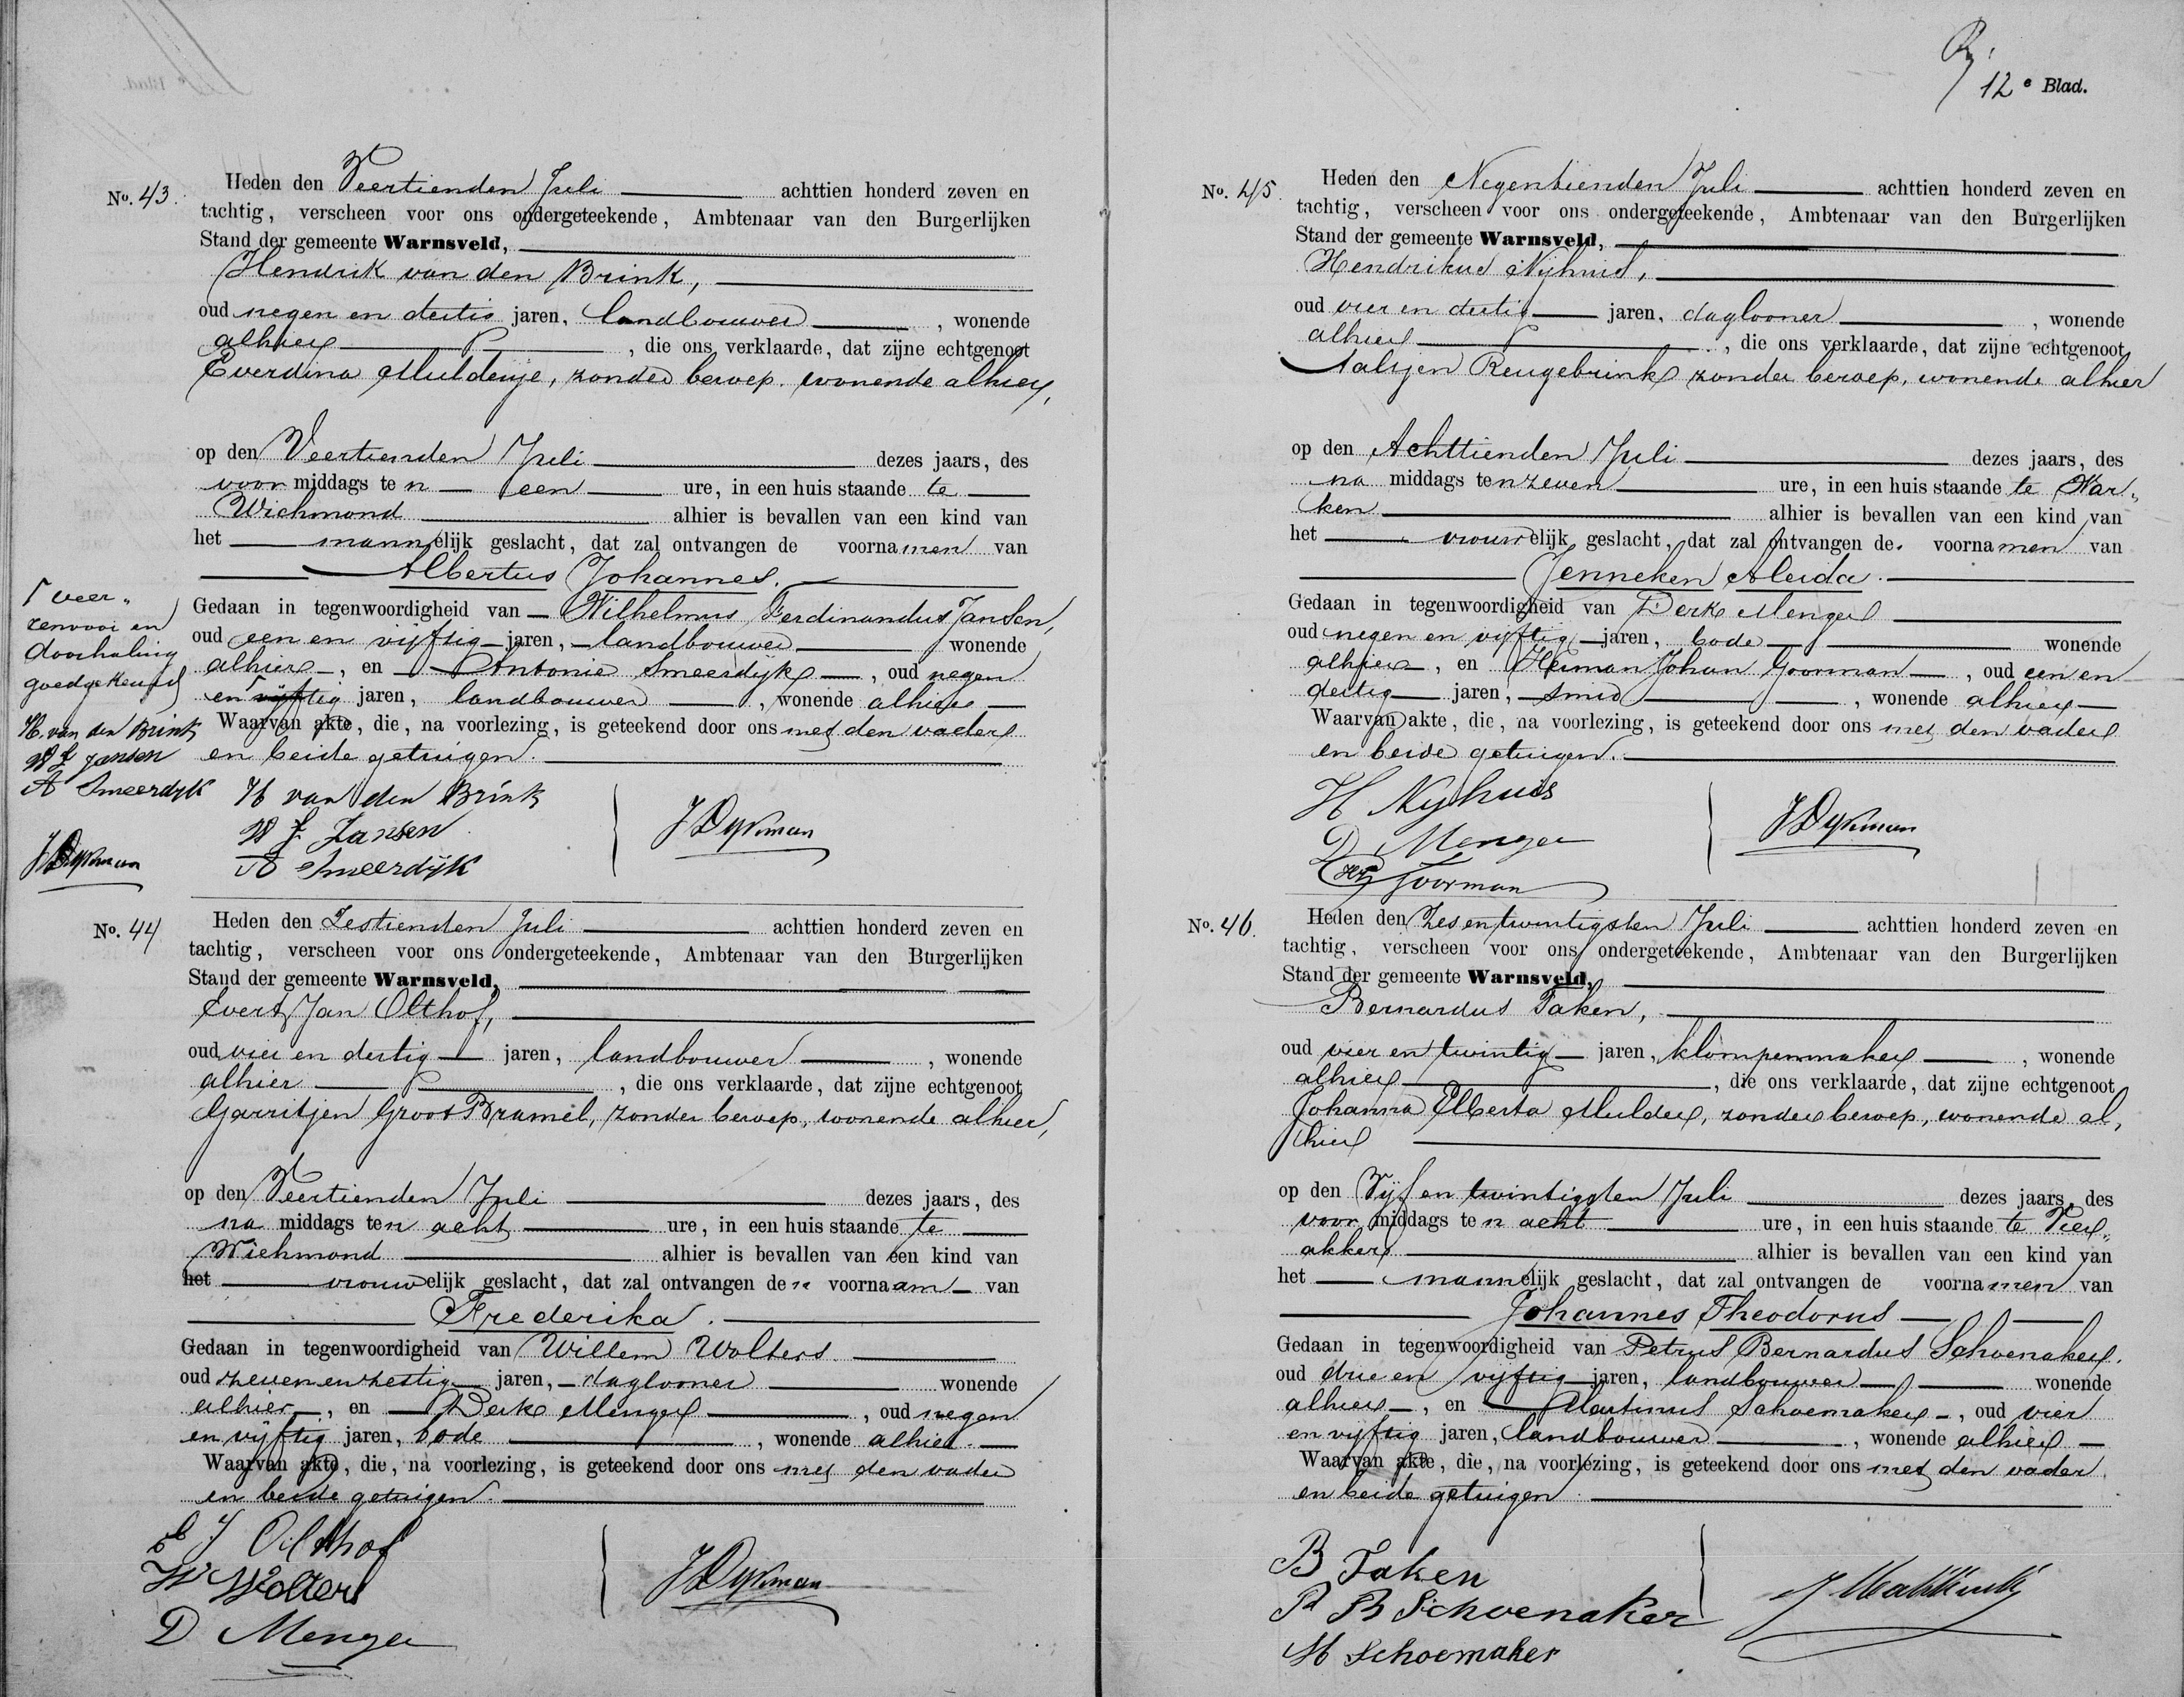 12e Blad.
No. 43.
Heden den Veertienden Juli achttien honderd zeven en
tachtig, verscheen voor ons ondergeteekende, Ambtenaar van den Burgerlijken
Stand der gemeente Warnsveld,
Hendrik van den Brink,
oud negen en dertig jaren, landbouwer, wonende
alhier, die ons verklaarde, dat zijne echtgenoot
Everdina Mulderije, zonder beroep, wonende alhier,
op den Veertienden Juli dezes jaars, des
voor middags ten een ure, in een huis staande te
Wichmond alhier is bevallen van een kind van
het mannelijk geslacht, dat zal ontvangen de voornamen van
Albertus Johannes.
Gedaan in tegenwoordigheid van Wilhelmus Ferdinandus Jansen,
oud een en vijftig jaren, landbouwer wonende
alhier, en Antonie Smeerdijk, oud negen
en vijftig jaren, landbouwer, wonende alhier
Waarvan akte, die, na voorlezing, is geteekend door ons met den vader
en beide getuigen.
Γ veer„
renvooi en
doorhaling
goedgekeurd
H. van den Brink
W F Jansen
A Smeerdijk
J Dykman
H van den Brink
W F Jansen
A Smeerdijk
J Dykman
No. 44
Heden den Zestienden Juli achttien honderd zeven en
tachtig, verscheen voor ons ondergeteekende, Ambtenaar van den Burgerlijken
Stand der gemeente Warnsveld,
Evert Jan Olthof,
oud vier en dertig jaren, landbouwer, wonende
alhier, die ons verklaarde, dat zijne echtgenoot
Garritjen Groot Bramel, zonder beroep, wonende alhier,
op den Veertienden Juli dezes jaars, des
na middags ten acht ure, in een huis staande te
Wichmond alhier is bevallen van een kind van
het vrouwelijk geslacht, dat zal ontvangen den voornaam van
Frederika.
Gedaan in tegenwoordigheid van Willem Wolters
oud zeven en zestig jaren, daglooner wonende
alhier, en Derk Menger, oud negen
en vijftig jaren, bode, wonende alhier.
Waarvan akte, die, na voorlezing, is geteekend door ons met den vader
en beide getuigen.
E J Olthof
W Wolters
D Menger
J Dykman
No. 45.
Heden den Negentienden Juli achttien honderd zeven en
tachtig, verscheen voor ons ondergeteekende, Ambtenaar van den Burgerlijken
Stand der gemeente Warnsveld,
Hendrikus Nijhuis,
oud vier en dertig jaren, daglooner, wonende
alhier, die ons verklaarde, dat zijne echtgenoot
Aaltjen Reugebrink zonder beroep, wonende alhier
op den Achttienden Juli dezes jaars, des
na middags ten zeven ure, in een huis staande te War„
ken alhier is bevallen van een kind van
het vrouwelijk geslacht, dat zal ontvangen de voornamen van
Jenneken Aleida.
Gedaan in tegenwoordigheid van Derk Menger
oud negen en vijftig jaren, bode wonende
alhier, en Herman Johan Goorman, oud een en
dertig jaren, smid, wonende alhier
Waarvan akte, die, na voorlezing, is geteekend door ons met den vader
en beide getuigen.
H Nyhuis
D Menger
Goorman
J Dykman
No. 46.
Heden den Zesentwintigsten Juli achttien honderd zeven en
tachtig, verscheen voor ons ondergeteekende, Ambtenaar van den Burgerlijken
Stand der gemeente Warnsveld,
Bernardus Taken,
oud vier en twintig jaren, klompenmaker, wonende
alhier, die ons verklaarde, dat zijne echtgenoot
Johanna Elberta Mulder, zonder beroep, wonende al„
hier
op den Vijf en twintigsten Juli dezes jaars, des
voor middags ten acht ure, in een huis staande te Vier„
akker alhier is bevallen van een kind van
het mannelijk geslacht, dat zal ontvangen de voornamen van
Johannes Theodorus
Gedaan in tegenwoordigheid van Petrus Bernardus Schoenaker.
oud drie en vijftig jaren, landbouwer wonende
alhier, en Martinus Schoemaker, oud vier
en vijftig jaren, landbouwer, wonende alhier
Waarvan akte, die, na voorlezing, is geteekend door ons met den vader
en beide getuigen.
B Taken
P B Schoenaker
M Schoemaker